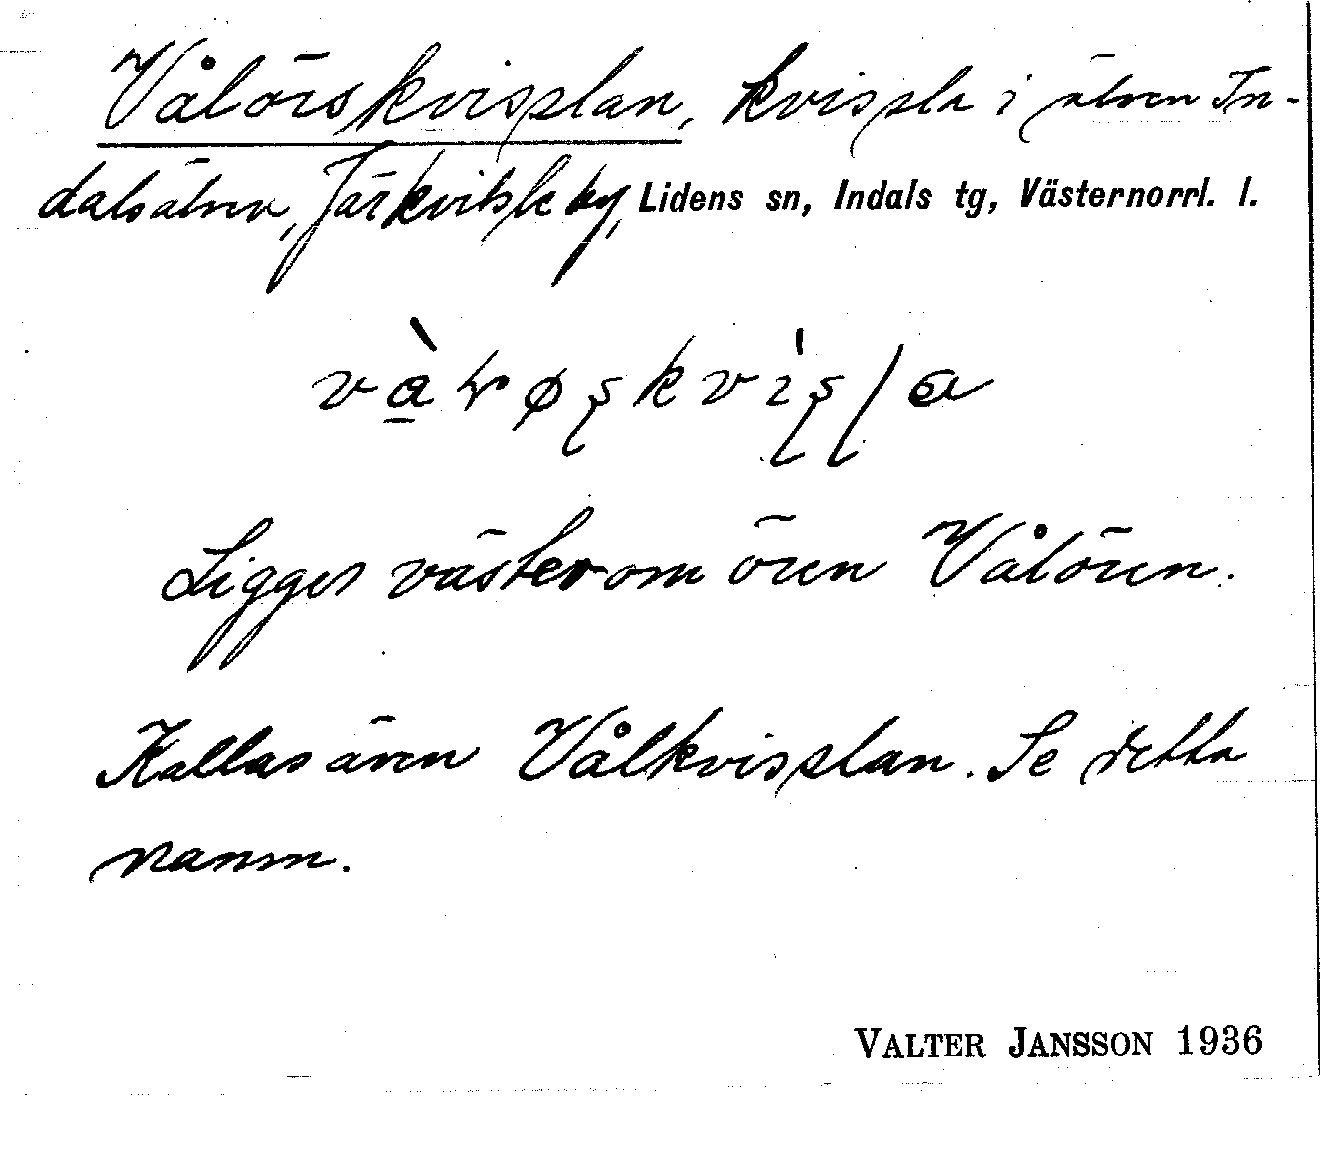 Vålörskvisslan, kvissla i älven In-
dalsälven, Järkvitsle by, Lidens sn, Indals tg, Västernorrl. l.
Ligger väster om ören Vålören.
Kallas även Vålkvisslan. Se detta
namn.
VALTER JANSSON 1936